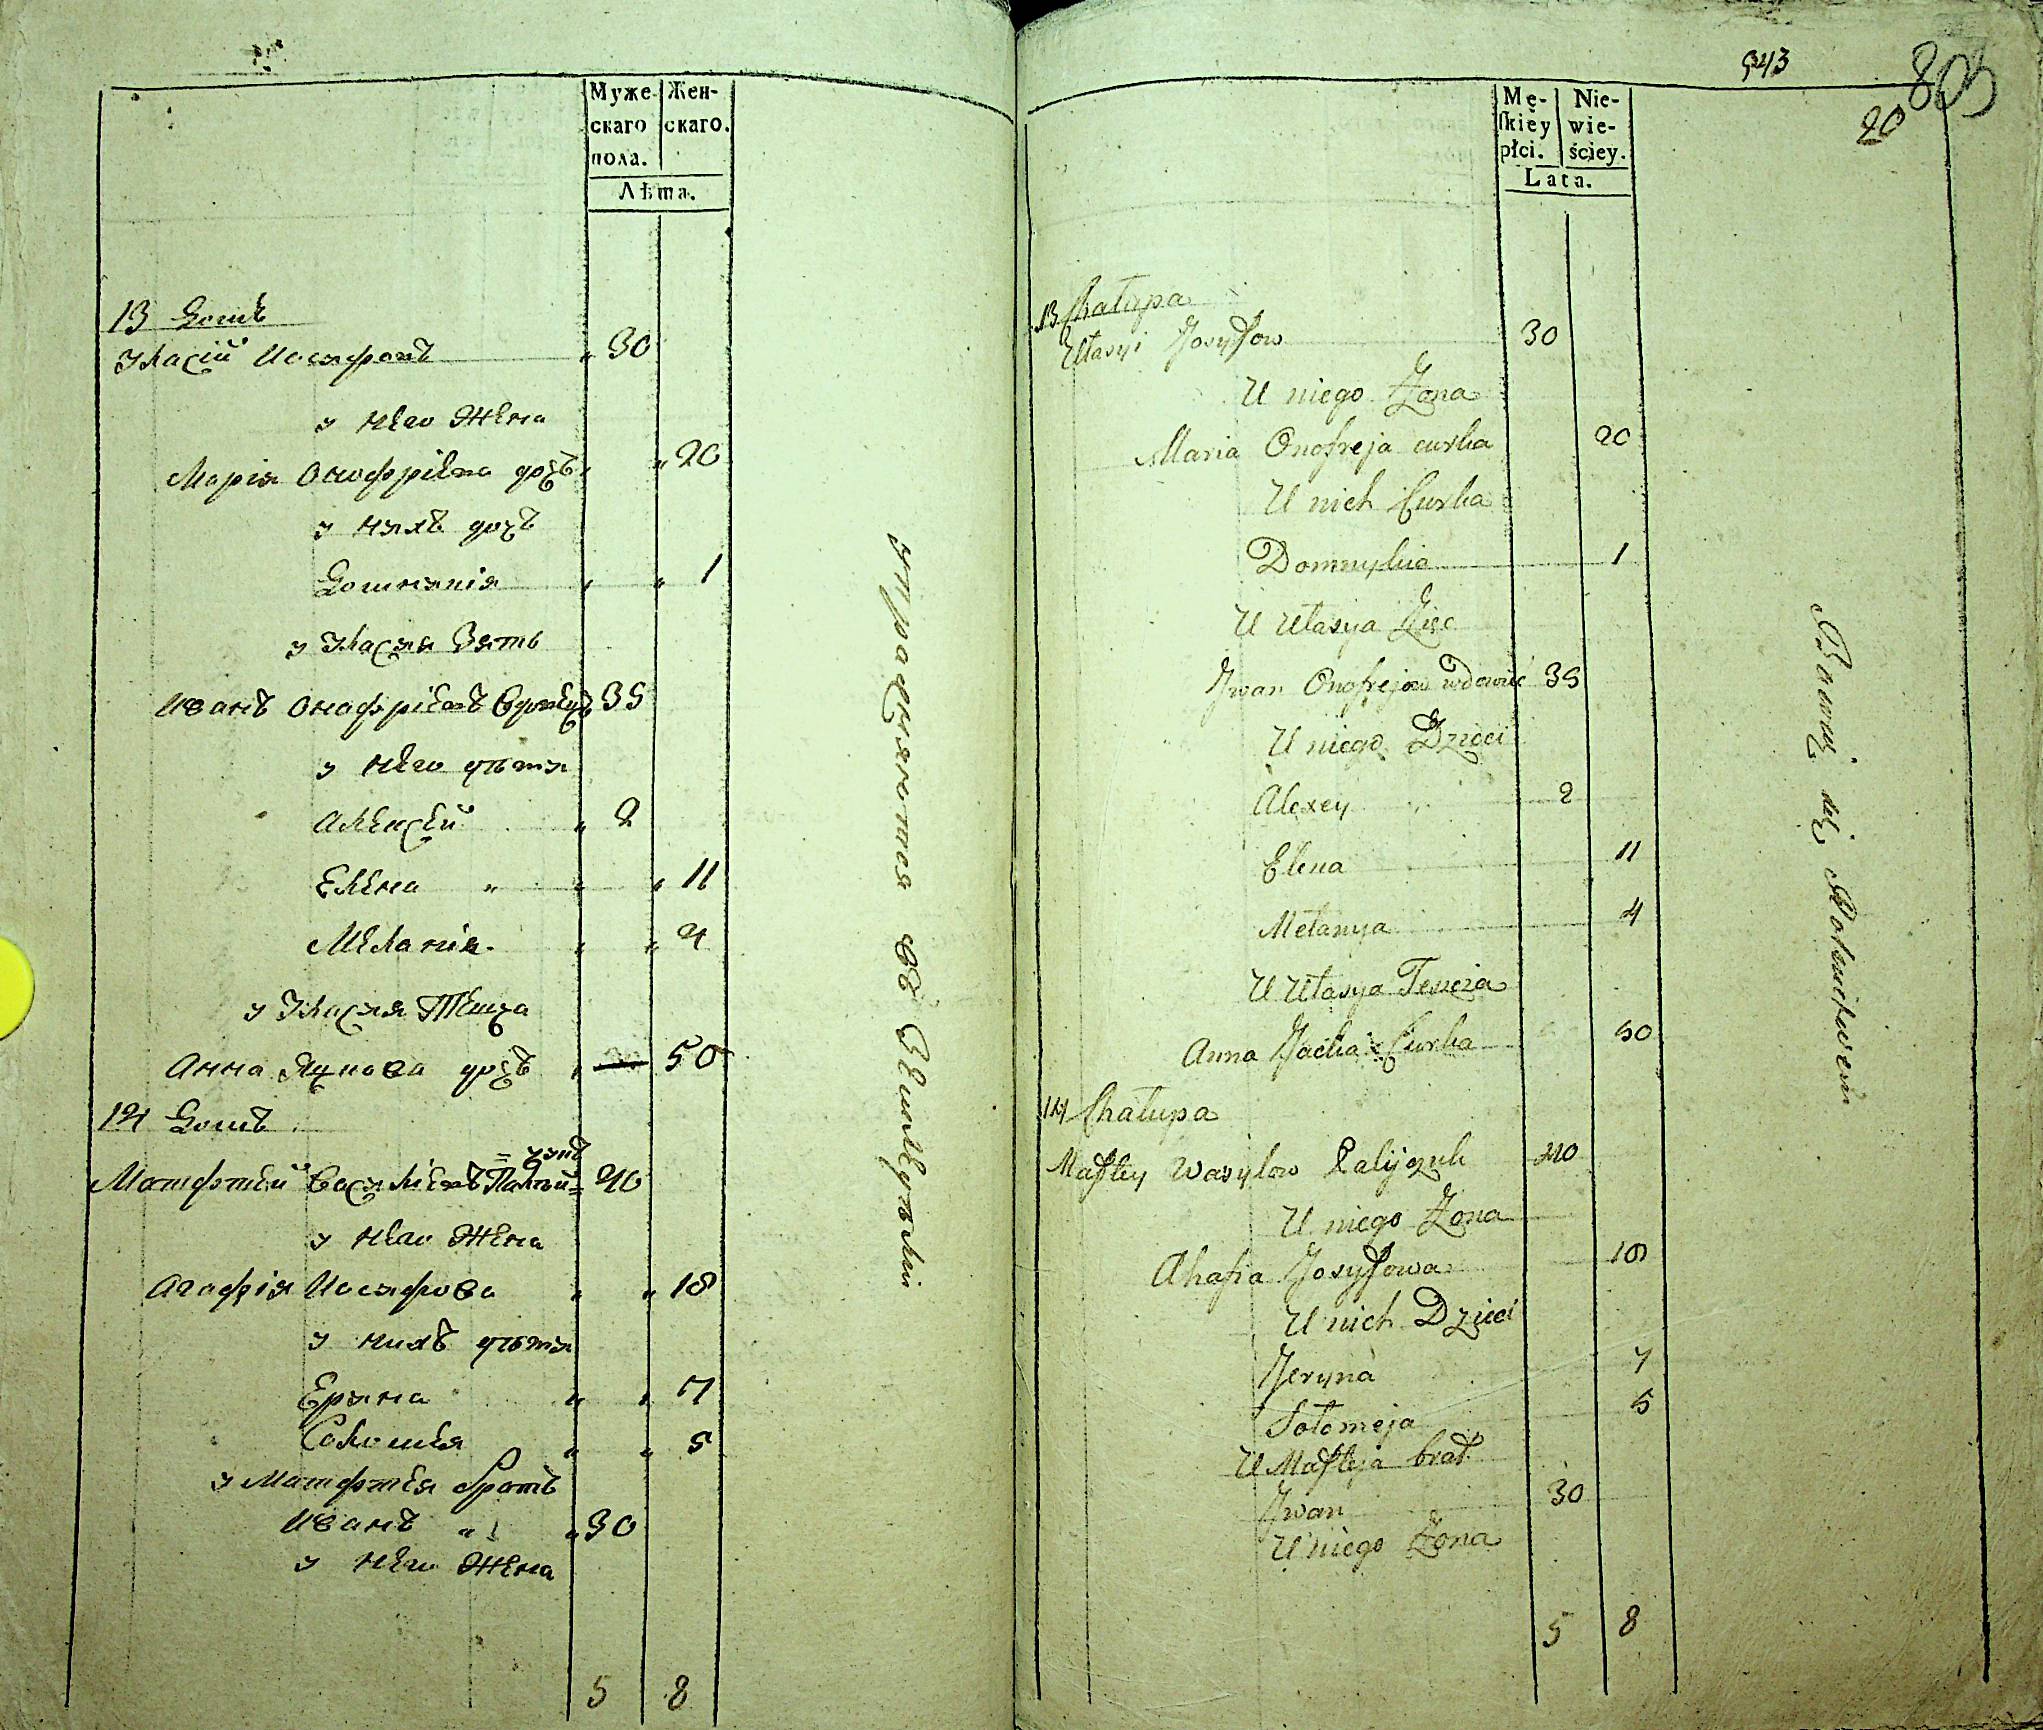 Муже- Жен-
скаго скаго.
пола.
Лѣта.
13 Домъ
Уласій Иосифовъ 30
у него жена
Марія Онофріева дочь 20
у нихъ дочь
Домникія 1
у Уласия Зять
Иванъ Онофріевъ вдовецъ 35
у него дѣти
Алексей 2
Елена 11
Меланія 4
у Уласия Теща
Анна Яцкова дочь 50
14 Домъ
Матфтей Василіевъ Палѣй=
=чукъ 40
у него жена
Агафія Иосифова 18
у нихъ дѣти
Ерина 7
Соломея 5
у Матфтея братъ
Иванъ 30
у него жена
5 8
упражняются въ Земледелии
543
803
20
Mę- Nie-
skiey wie-
płci. ściey.
Lata.
13 Chałupa
Ułasyi Josyfow 30
U niego Żona
Maria Onofreja curka 20
U nich Curka
Domnykia 1
U Ułasya Zięc
Jwan Onofrejow wdowiec 35
U niego Dzieci
Alexey 2
Elena 11
Mełanya 4
U Ułasya Teścia
Anna Jacka Curka 50
14 Chałupa
Maftey Wasylow Palijczuk 40
U niego Żona
Ahafia Josyfowa 18
U nich Dzieci
Jeryna 7
Sołomeja 5
U Mafteja brat
Jwan 30
U niego Żona
5 8
Bawią się Rolnictwem